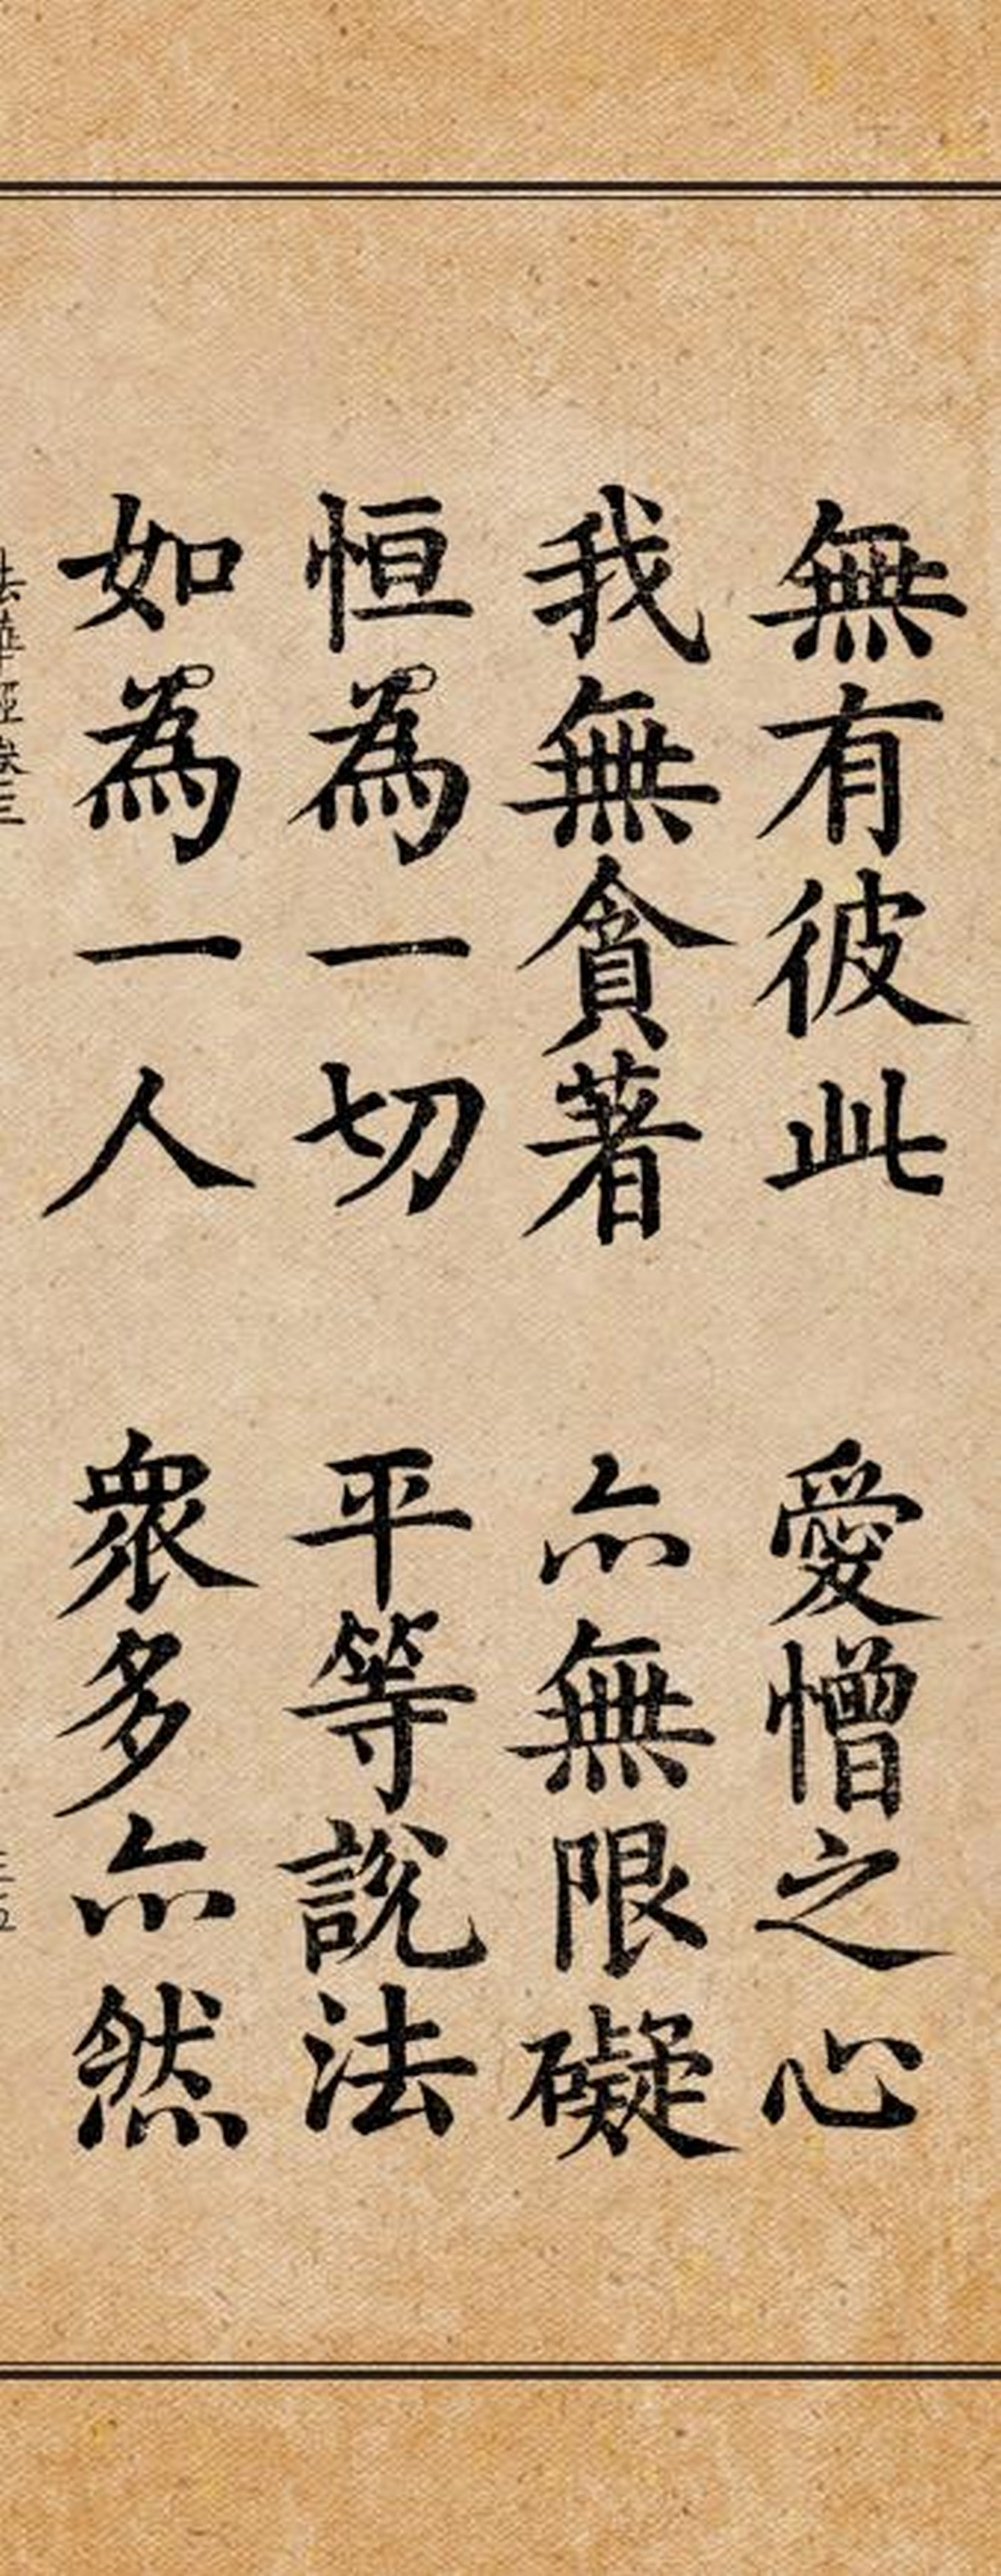 無有彼此 愛憎之心
我無貪著 亦無限礙
恒為一切 平等說法
如為一人 衆多亦然
法華經卷三